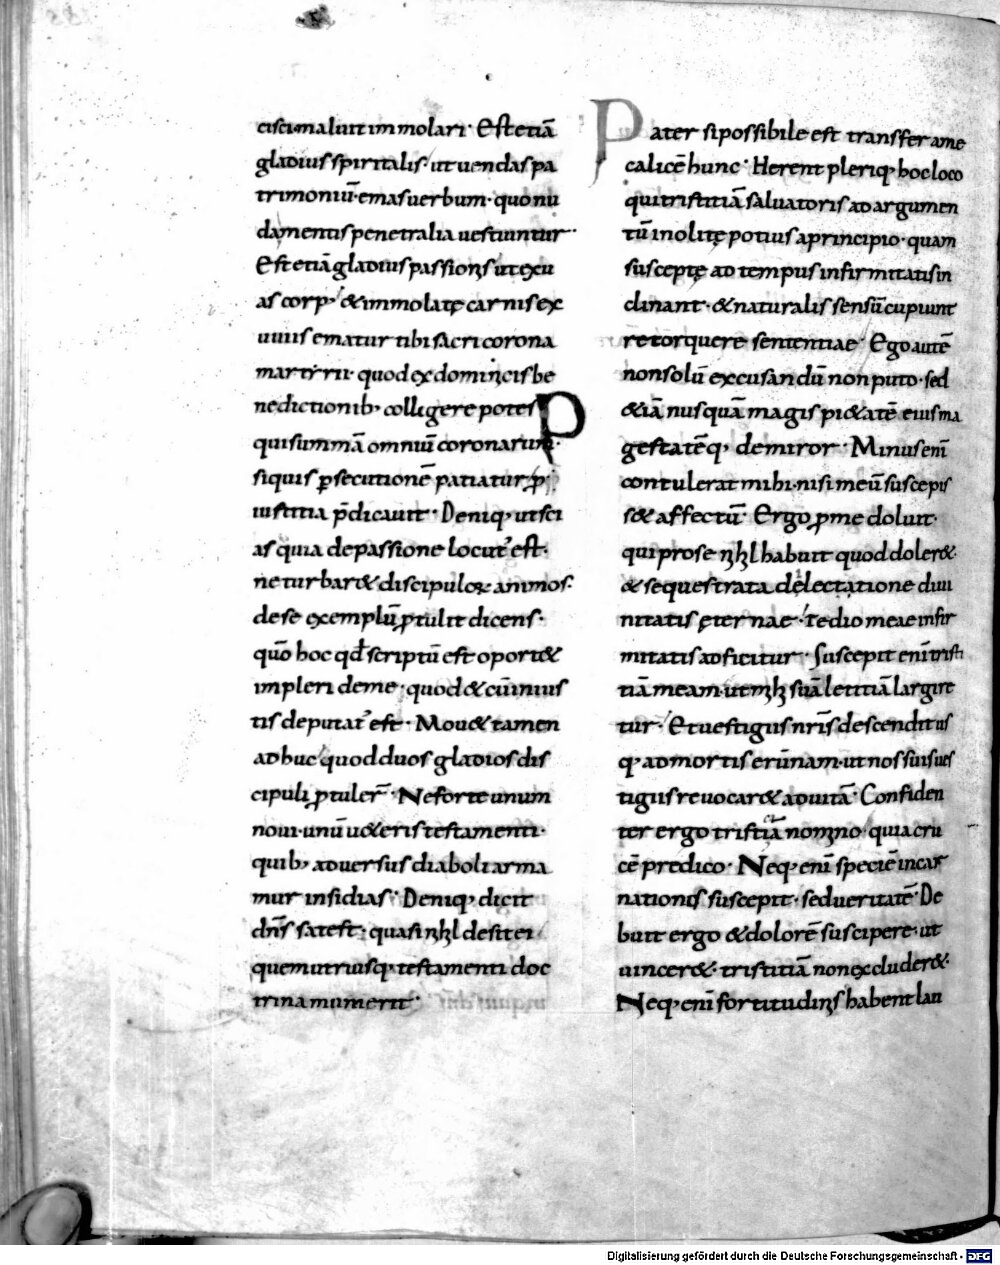 cisci maluit immolari· Est etiā
gladius spiritalis· ut uendas pa
trimoniū· emas uerbum· quo nu
da mentis penetralia uestiuntur·
Est etiā gladius passionis ut exu
as corp' & immolatę carnis ex
uuiis ematur tibi sacri corona
martyrii· quod ex dominicis be
nedictionib; colligere potes
qui summā omniū coronarum·
si quis ꝑsecutionē patiatur ꝓ
iustitia p̄dicauit· Deniq; ut sci
as quia de passione locut' est·
ne turbar& discipuloꝝ animos·
de se exemplū ꝓtulit dicens·
quō hoc qđ scriptū est oport&
impleri de me· quod & cū inius
tis deputat' est· Mou& tamen
adhuc quod duos gladios dis
cipuli ꝓtuler̄· Ne forte unum
noui· unū u&eris testamenti·
quib; aduersus diaboli arma
mur insidias· Deniq; dicit
dn̄s sat est· quasi nihil desit ei
quem utriusq; testamenti doc
trina munierit·
Pater si possibile est transfer a me
calicē hunc· Herent pleriq; hoc loco
qui tristitiā saluatoris ad argumen
tū inolitę potius a principio· quam
susceptę ad tempus infirmitatis in
clinant· & naturalis sensū cupiunt
retorquere sententiae· Ego autē
non solū excusandū non puto· sed
&iā nusquā magis pi&atē eius ma
gestatēq; demiror· Minus enī
contulerat mihi· nisi meū suscepis
s& affectū· Ergo ꝓ me doluit·
qui pro se nihil habuit quod doler&·
& sequestrata delectatione diui
nitatis ęternae· tedio meae infir
mitatis adficitur· Suscepit enī tristi
tiā meam· ut mihi suā letitiā largire
tur· Et uestigiis nr̄is descendit us
q; ad mortis erūnam· ut nos suis ues
tigiis reuocar& ad uitā· Confiden
ter ergo tristiā nomino· quia cru
cē predico· Neq; enī speciē incar
nationis suscepit· sed ueritatē· De
buit ergo & dolorē suscipere· ut
uincer& tristitiā non excluder&·
Neq; enī fortitudinis habent lau
Digitalisierung gefördert durch die Deutsche Forschungsgemeinschaft - DFG